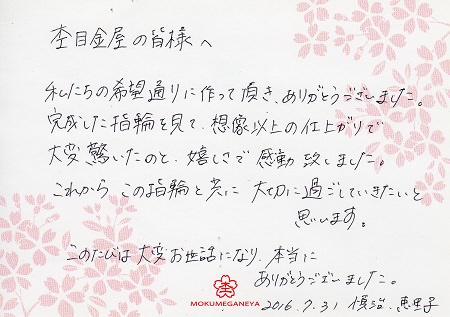 杢目金屋の皆様へ
私たちの希望通りに作って頂き、ありがとうございました。
完成した指輪を見て、想像以上の仕上がりで
大変驚いたのと、嬉しさで感動致しました。
これから、この指輪と共に大切に過ごしていきたいと
思います。
このたびは大変お世話になり、本当に
ありがとうございました。
杢
MOKUMEGANEYA
2016.7.31 慎治、恵里子